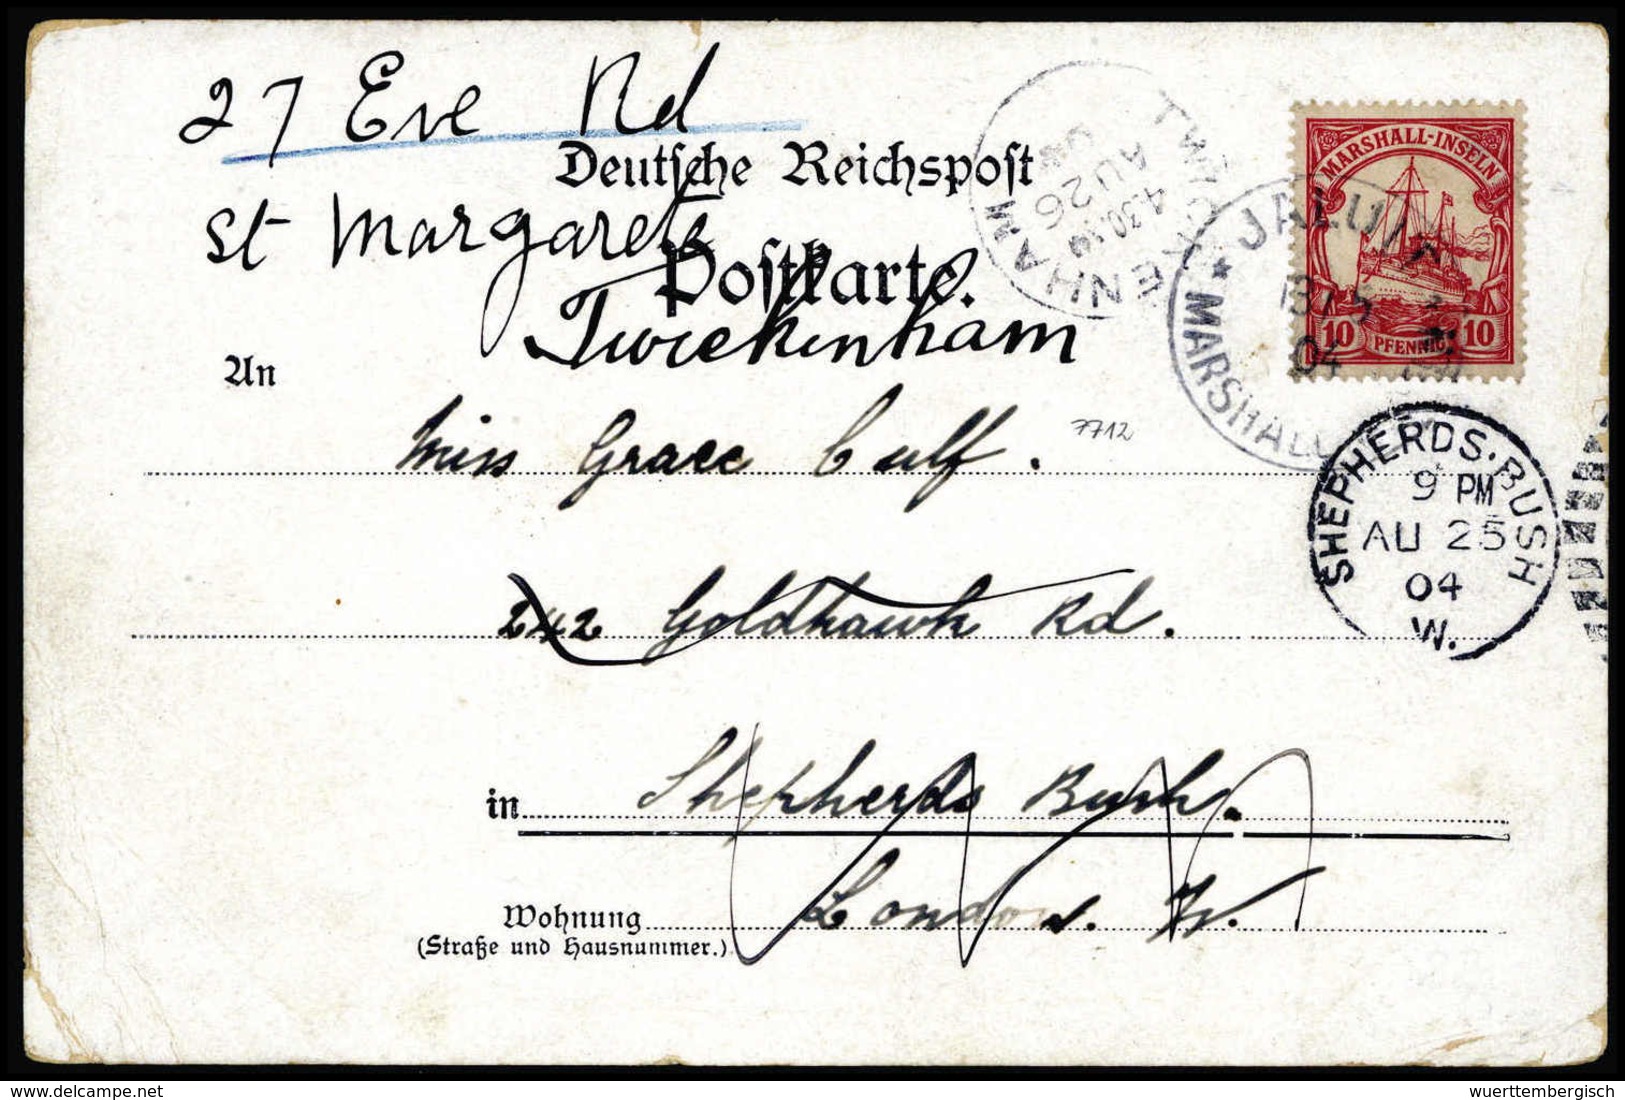 27 Eve Rd
Deutsche Reichspost
St Margarets
Postkarte.
Twickenham
TWICKENHAM
4.30.PM
AU 26
04
MARSHALL-INSELN
10 PFENNIG 10
JALUIT
13/5
04
* MARSHALL
An
Miss Grace Culf.
7712
SHEPHERDS.BUSH
9 PM
AU 25
04
W.
242 Goldhawk Rd.
in Shepherds Bush.
Wohnung London. W.
(Straße und Hausnummer.)
Copyright Delcampe International
wuerttembergisch